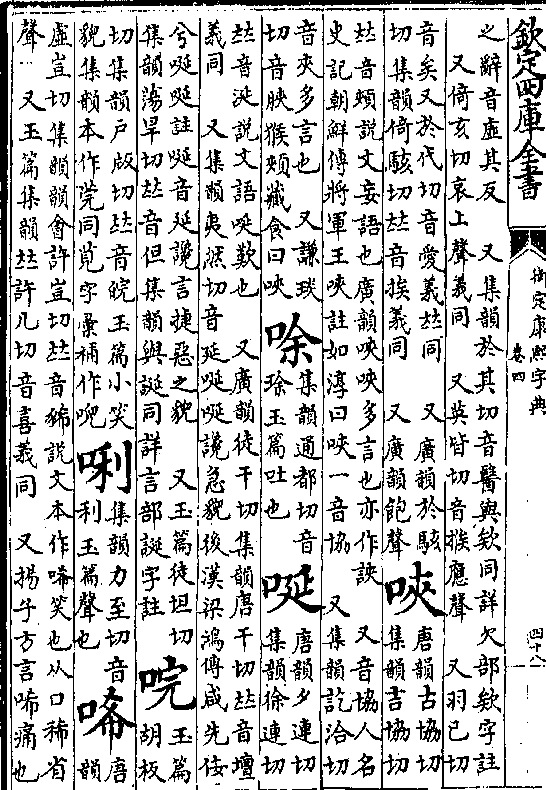 欽定四庫全書
御定康熙字典
卷四
四十八
之辭音虛其反　又集韻於其切音醫與欸同詳欠部欸字註
又倚亥切哀上聲義同　又英皆切音挨應聲　又羽已切
音矣又於代切音愛義𠀤同　又廣韻於駭
切集韻倚駭切𠀤音挨義同　又廣韻飽聲
唊
唐韻古協切
集韻吉協切
𠀤音頰說文妄語也廣韻唊唊多言也亦作䛟　又音協人名
史記朝鮮傳將軍王唊註如淳曰唊一音協　又集韻訖洽切
音夾多言也　又謙琰
切音脥猴頰藏食曰唊
唋
集韻通都切音
㻌玉篇吐也
唌
唐韻夕連切
集韻徐連切
𠀤音涎說文語唌歎也　又廣韻徒干切集韻唐干切𠀤音壇
義同　又集韻夷然切音延唌唌讒急貌後漢梁鴻傳咸先佞
兮唌唌註唌音延讒言捷惡之貌　又玉篇徒坦切
集韻蕩旱切𠀤音但集韻與誕同詳言部誕字註
唍
玉篇
胡板
切集韻戸版切𠀤音皖玉篇小笑
貌集韻本作莞同莧字彙補作唲
唎
集韻力至切音
利玉篇聲也
唏
唐
韻
虛豈切集韻韻會許豈切𠀤音豨說文本作唏笑也从口稀省
聲　又玉篇集韻𠀤許几切音喜義同　又揚子方言唏痛也